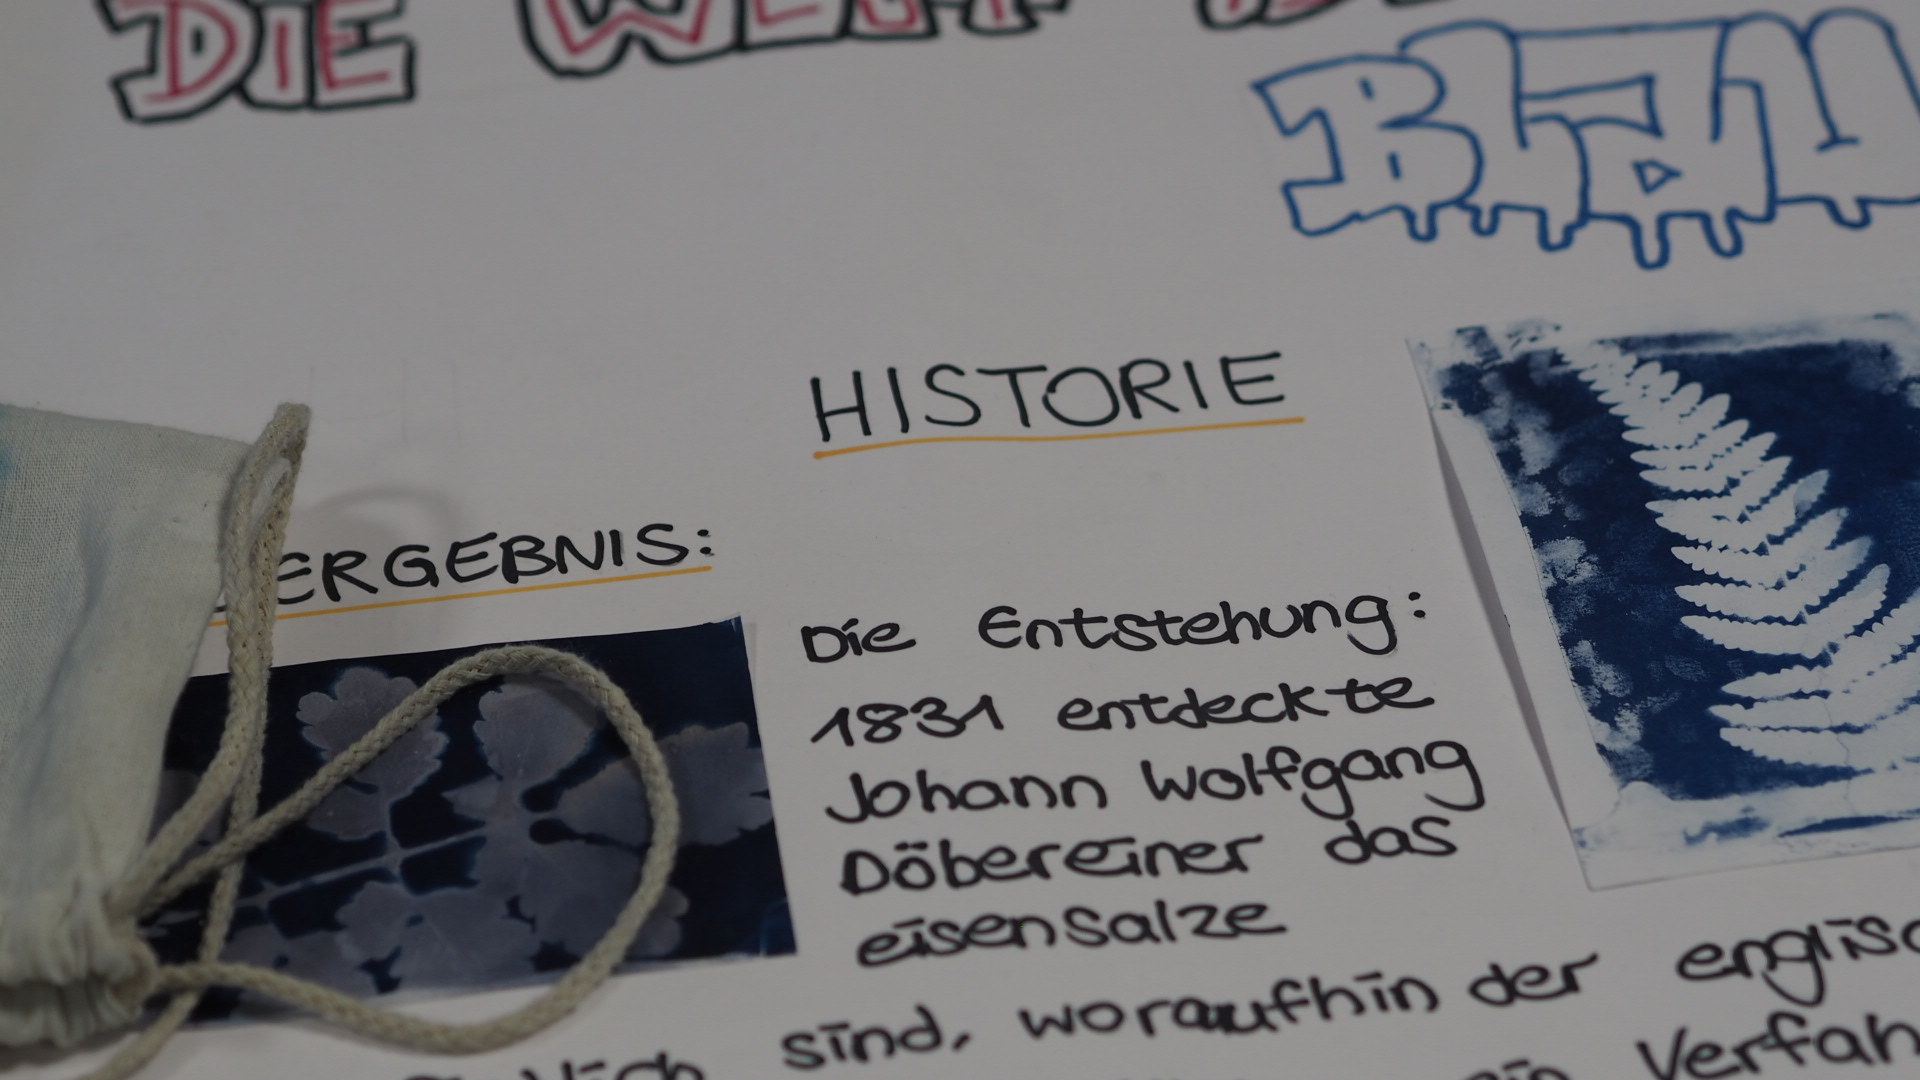 DIE WELT
Blau
HISTORIE
ERGEBNIS:
Die Entstehung:
1831 entdeckte
Johann Wolfgang
Döbereiner das
eisensalze
sind, woraufhin der englisc
Verfah